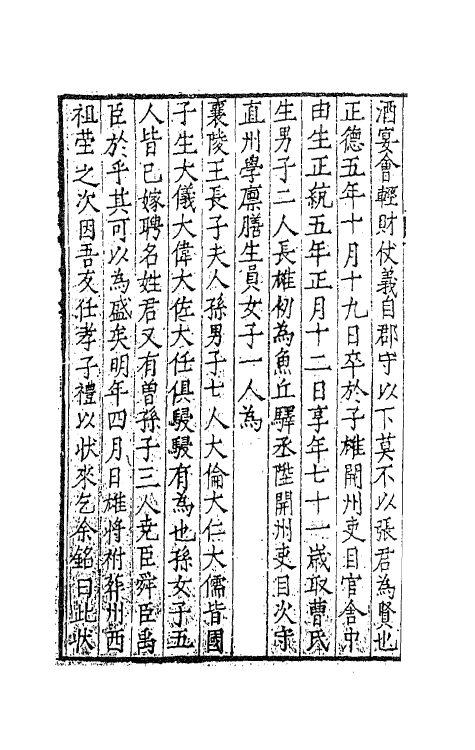 酒宴會輕財仗義自郡守以下莫不以張君為賢也
正德五年十月十九日卒於子權開州吏目官舍中
由生正統五年正月十二日享年七十一歲取曹氏
生男子二人長權初為魚丘驛丞陞開州吏目次守
直州學廩膳生員女子一人為
襄陵王長子夫人孫男子七人大倫大仁大儒皆國
子生大儀大偉大佐大任俱駸駸有為也孫女子五
人皆已嫁聘名姓君又有曾孫子三人堯臣舜臣禹
臣於乎其可以為盛矣明年四月日權將祔葬州西
祖塋之次因吾友任孝子禮以狀來乞余銘曰此狀